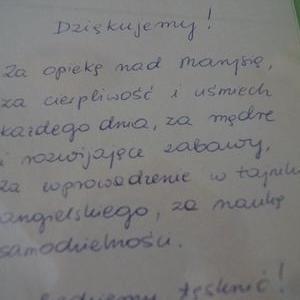 Dziękujemy!
Za opiekę nad Marysię,
za cierpliwość i uśmiech
każdego dnia, za mądre
i rozwijające zabawy,
za wprowadzenie w tajniki
angielskiego, za naukę
samodzielności.
tęsknić!